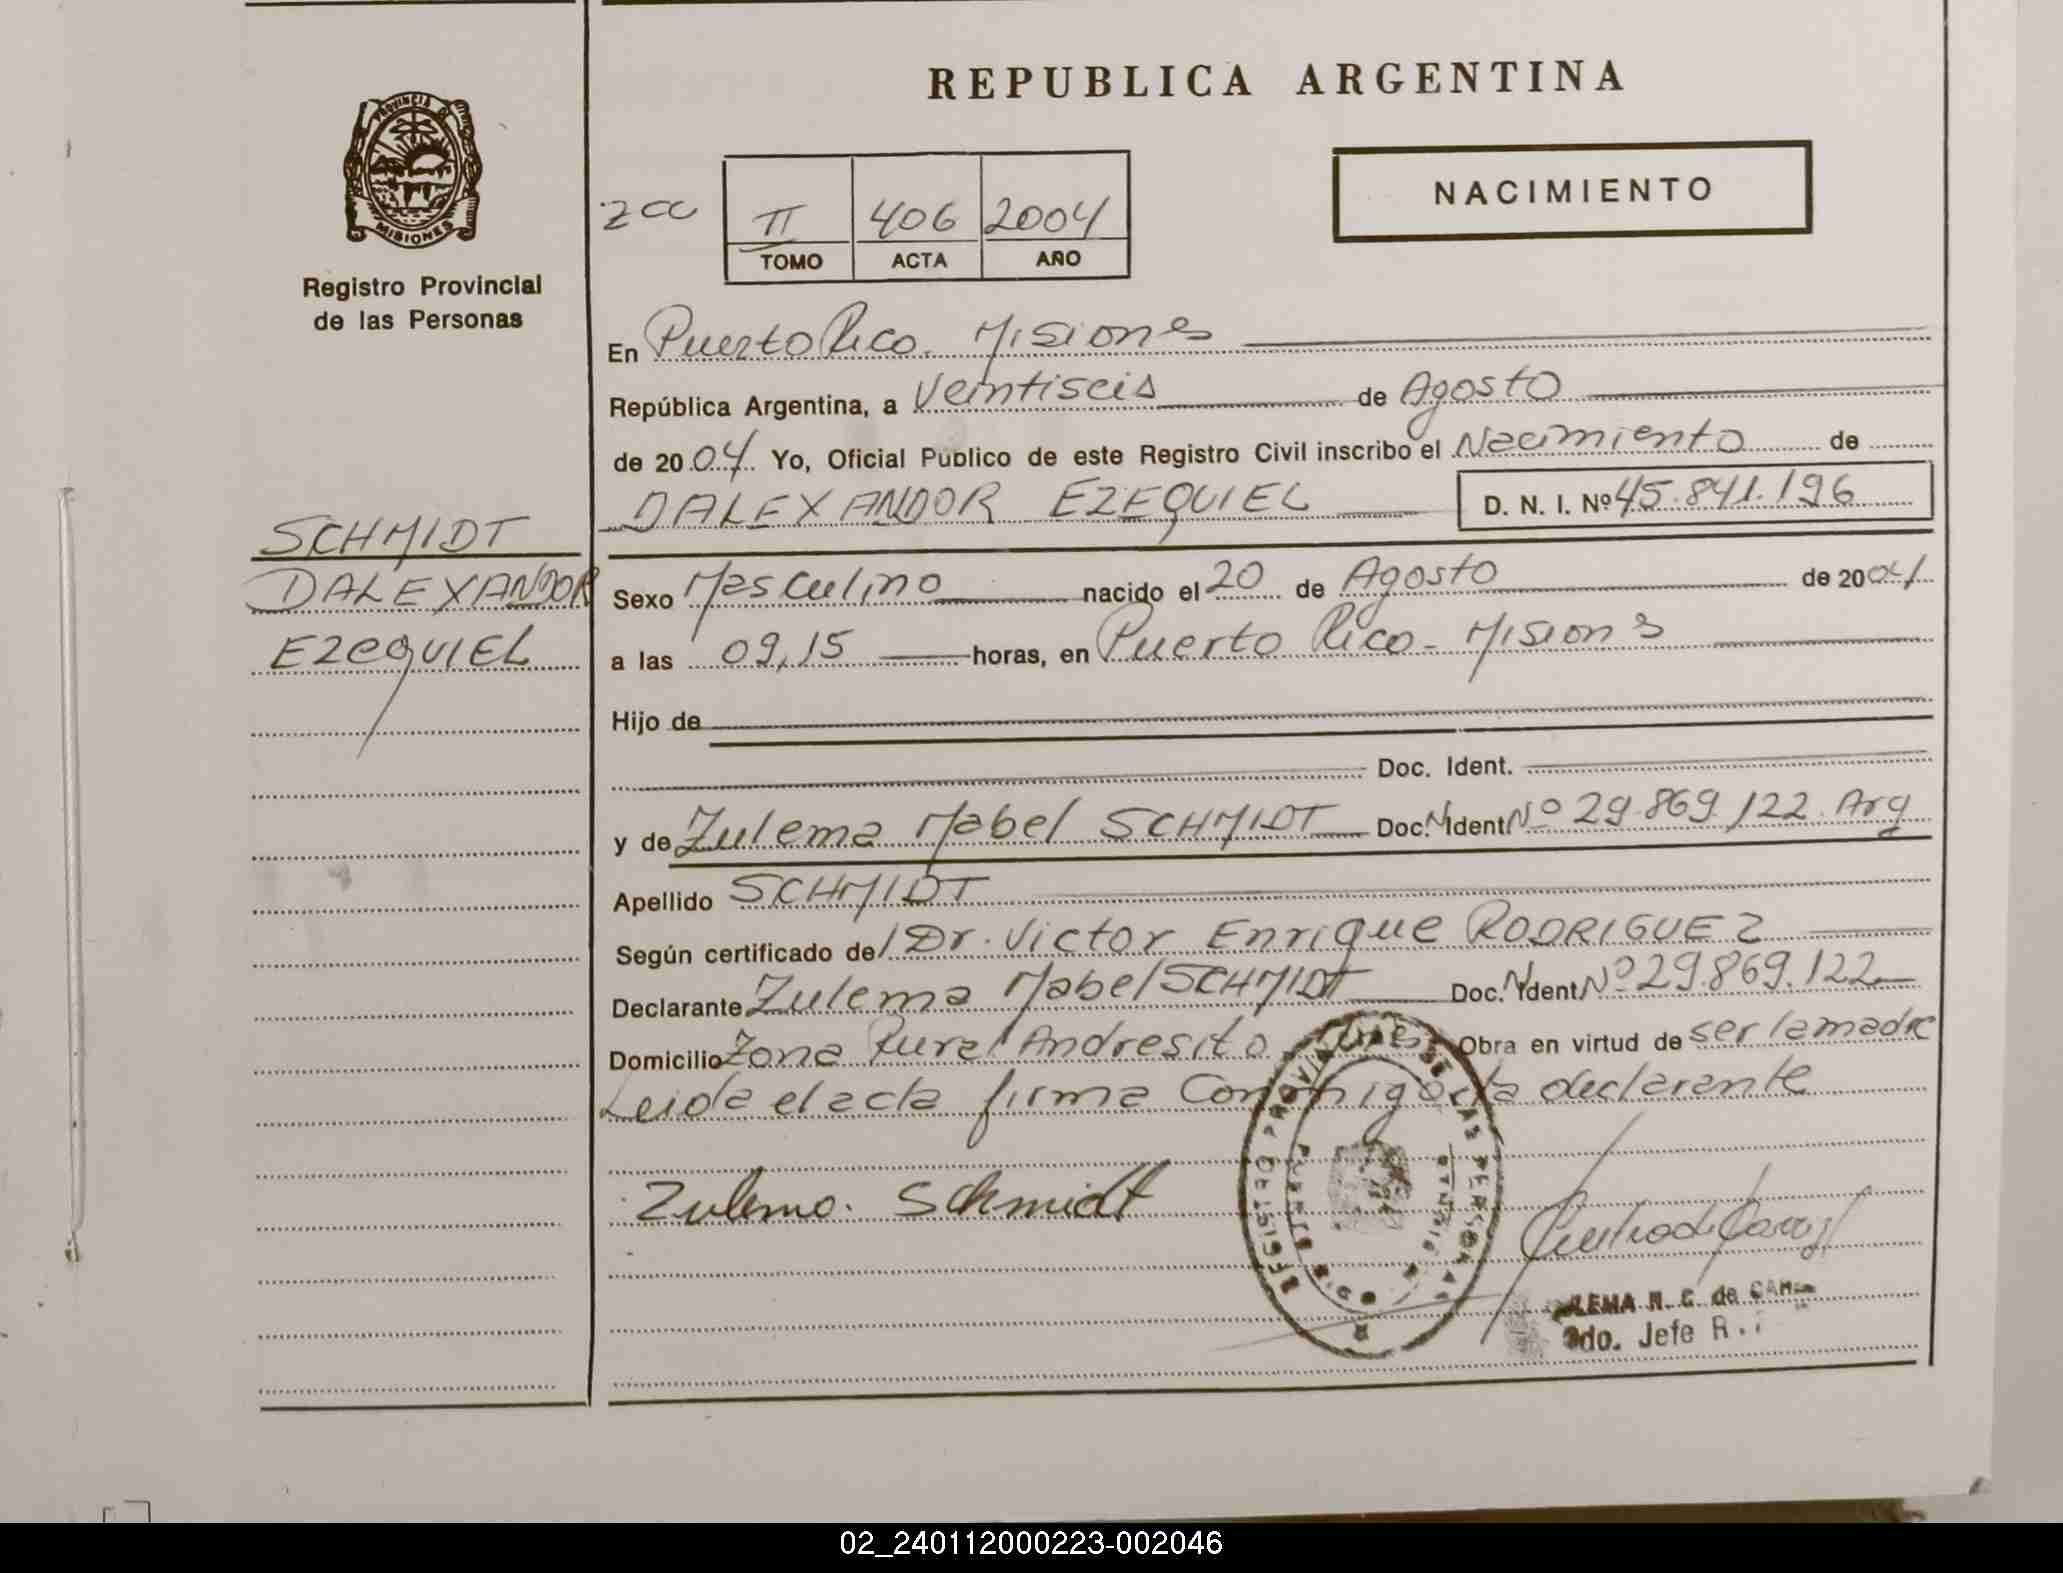 PROVINCIA DE
MISIONES
Registro Provincial
de las Personas
SCHMIDT
DALEXANDOR
EZEQUIEL
REPUBLICA ARGENTINA
NACIMIENTO
II 406 2004
TOMO ACTA AÑO
En Puerto Rico. Misiones
República Argentina, a Veintiseis de Agosto
de 2004 Yo, Oficial Público de este Registro Civil inscribo el Nacimiento de
DALEXANDOR EZEQUIEL D. N. I. Nº 45.841.196
Sexo Masculino nacido el 20 de Agosto de 2004
a las 09,15 horas, en Puerto Rico - Misiones
Hijo de
Doc. Ident.
y de Zulema Mabel SCHMIDT Doc. N. Ident Nº 29.869.122 Arg
Apellido SCHMIDT
Según certificado de l Dr. Victor Enrique RODRIGUEZ
Declarante Zulema Mabel SCHMIDT Doc. N. Ident Nº 29.869.122
Domicilio Zona Rural Andresito Obra en virtud de ser la madre
Leida el acta firma Conmigo la declarante
Zulema. Schmidt
REGISTRO PROVINCIAL DE LAS PERSONAS
2do. Jefe R.
02_240112000223-002046